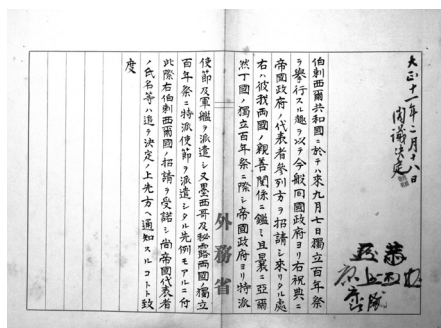 大正十一年二月十八日
閣議決定
伯剌西爾共和國ニ於テハ來九月七日獨立百年祭
ヲ擧行スル趣ヲ以テ今般同國政府ヨリ右祝典ニ
帝國政府ノ代表者參列方ヲ招請シ來リタル處
右ハ彼我兩國ノ親善關係ニ鑑ミ且曩ニ亞爾
然丁國ノ獨立百年祭ニ際シ帝國政府ヨリ特派
使節及軍艦ヲ派遣シ又墨西哥及秘露兩國ノ獨立
百年祭ニ特派使節ヲ派遣シタル先例モアルニ付
此際右伯剌西爾國ノ招請ヲ受諾シ尚帝國代表者
ノ氏名等ハ追テ決定ノ上先方ヘ通知スルコトト致
度
外務省